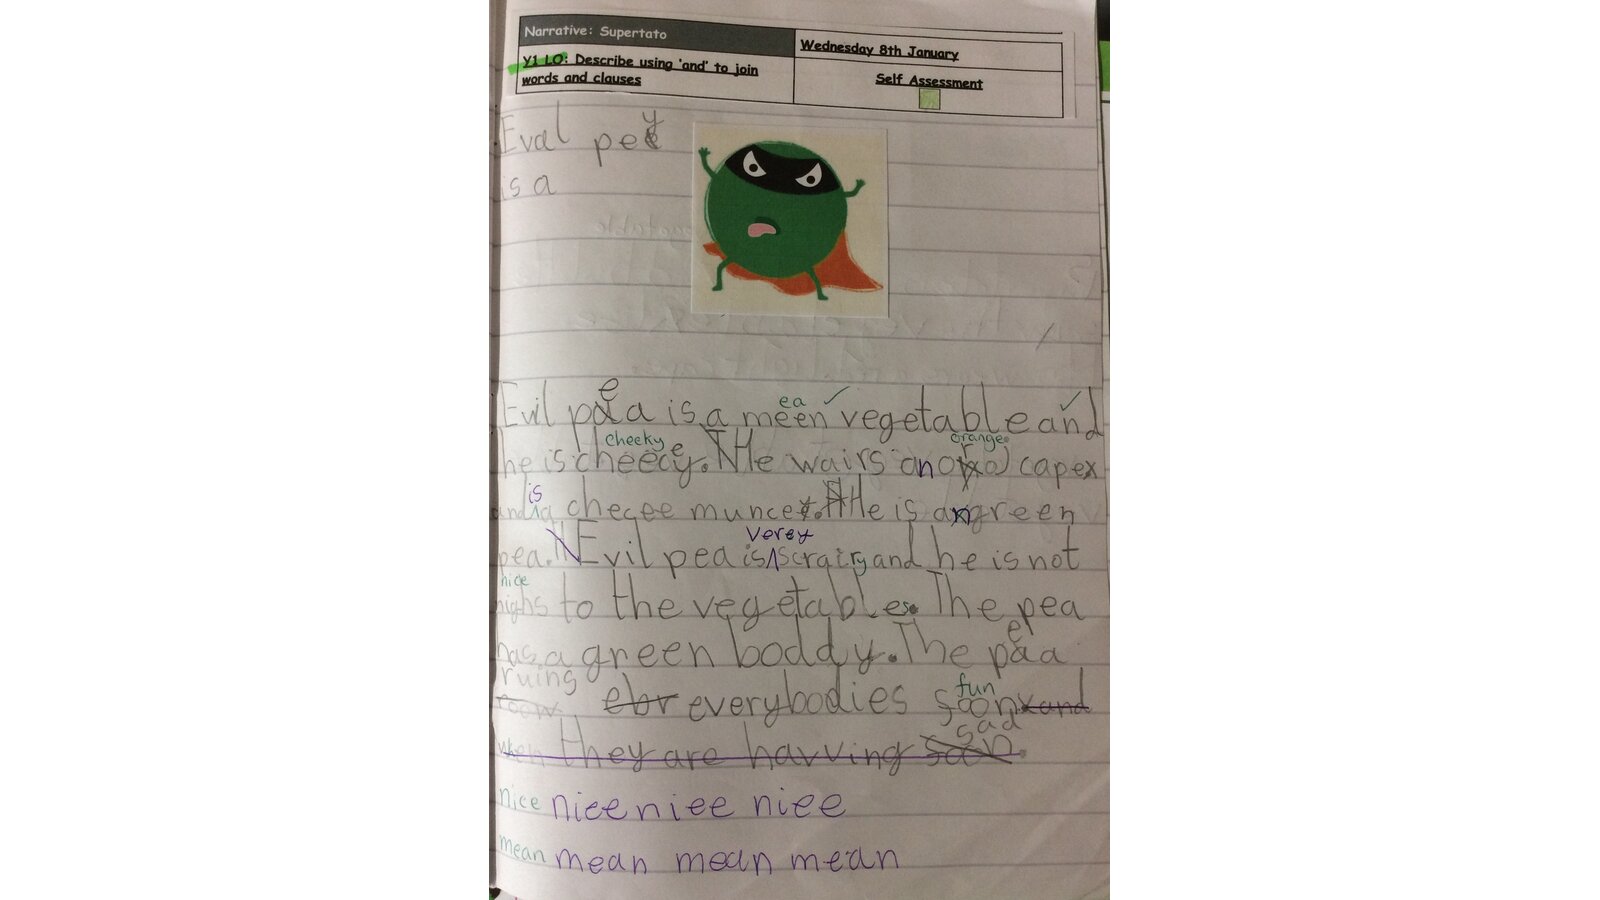 Narrative: Supertato
Wednesday 8th January
Y1 LO: Describe using 'and' to join
words and clauses
Self Assessment
Eval pey
is a
e
Evil paa is a meen vegetable and
ea
he is cheecy. He wairs an capex
cheeky e orange
and a checee munce. He is a green
is
pea. Evil pea is scrairy and he is not
verey
nighs to the vegetables. The pea
nice
has a green boddy. The paa
e
ruing
ebr everybodies soon and
fun
when they are havving soon.
sad
nice niee niee niee
mean mean mean mean